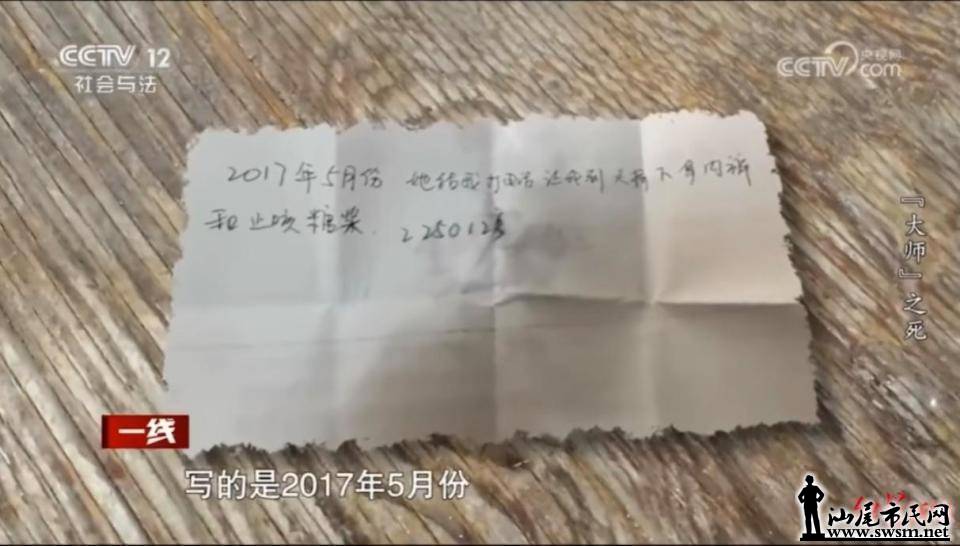 CCTV 12
社会与法
央视网
CCTV com
2017年5月份 她给我打电话让我到天桥下拿内裤
和止咳糖浆.
『大师』之死
一线
写的是2017年5月份
汕尾市民网
www.swsm.net